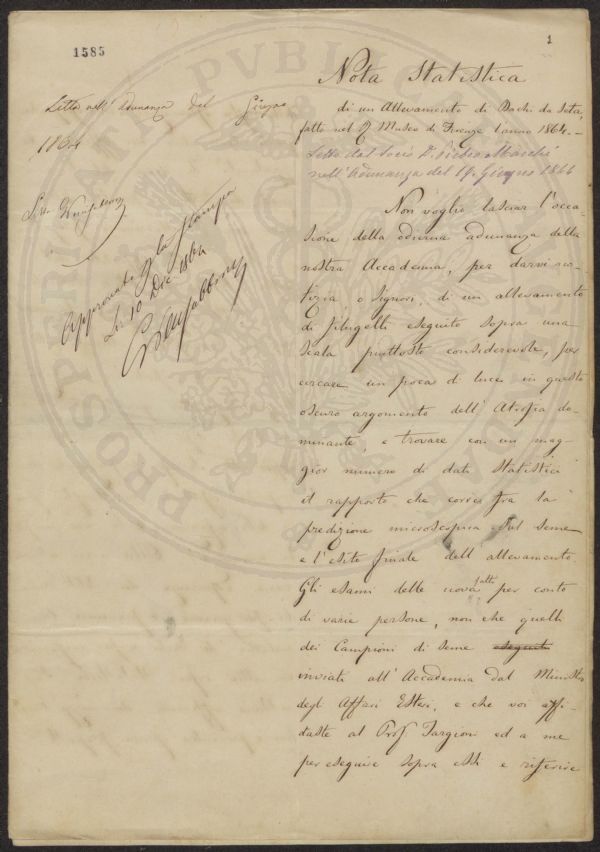 1585
1
Nota Statistica
di un Allevamento di Bachi da Seta,
fatto nel R. Museo di Firenze l'anno 1864.-
Letta dal Socio D. Pietro Marchi
nell'Adunanza del 19. Giugno 1864
Letta nell'Adunanza del Giugno
1864
Approvata p la Stampa
Li 10 Dic. 1864
Non voglio lasciar l'occa-
sione della odierna adunanza della
nostra Accademia, per darvi no-
tizia, o Signori, di un allevamento
di filugelli eseguito sopra una
scala piuttosto considerevole, per
cercare un poca d luce in questo
oscuro argomento dell'Atrofia do-
minante, e trovare con un mag-
gior numero di dati Statistici
il rapporto che corre fra la
predizione microscopica sul seme
e l'esito finale dell'allevamento.
Gli esami delle uova fatti per conto
di varie persone, non che quelli
dei Campioni di Seme eseguiti
inviati all'Accademia dal Ministro
degli Affari Esteri, e che voi affi-
daste al Prof Targioni ed a me
per eseguire sopra essi e riferire
PROSPERITATI PVBLICAE